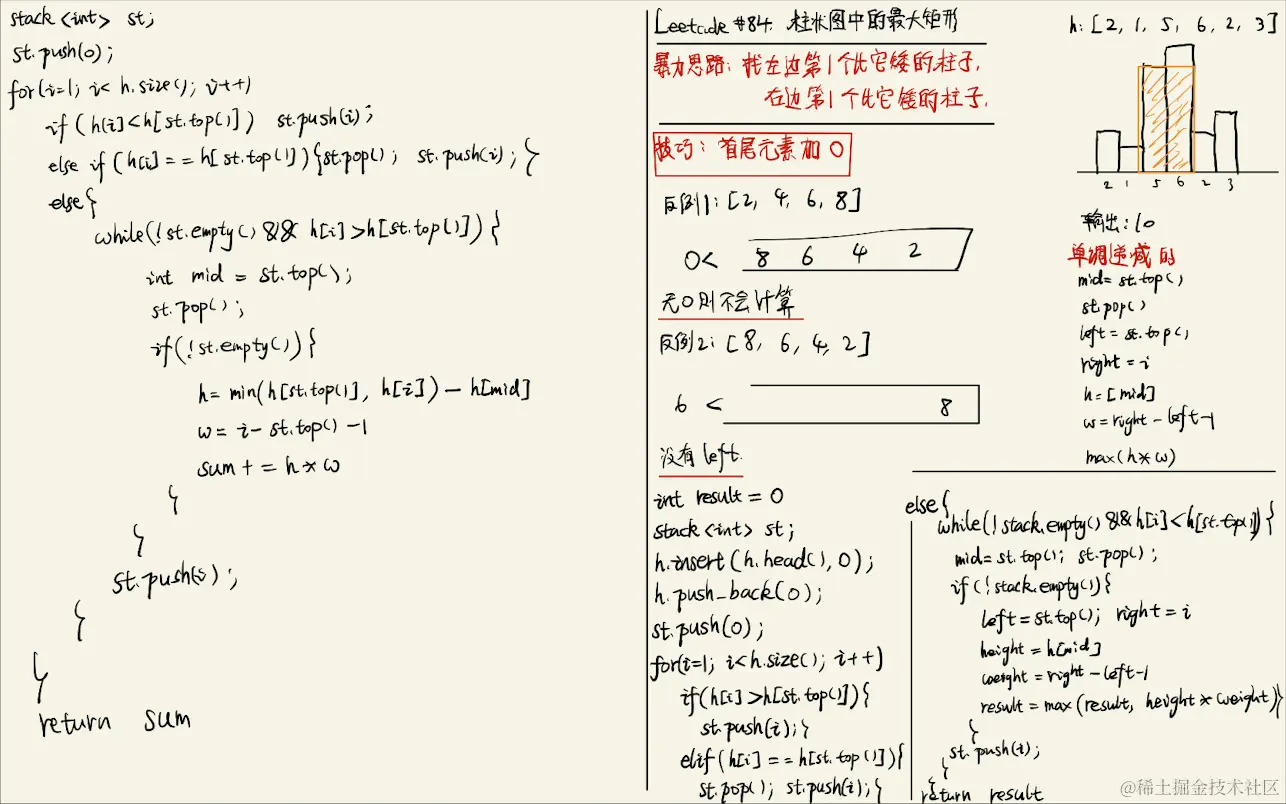 stack <int> st;
st.push(0);
for(i=1; i< h.size(); i++)
if (h[i]<h[st.top()]) st.push(i);
else if (h[i]==h[st.top()]){st.pop(); st.push(i);}
else{
while(!st.empty() && h[i]>h[st.top()]) {
int mid = st.top();
st.pop();
if(!st.empty()){
h= min(h[st.top()], h[i]) - h[mid]
w= i- st.top() -1
sum += h*w
}
}
st.push(i);
}
}
return sum
Leetcode #84. 柱状图中的最大矩形
暴力思路: 找左边第1个比它矮的柱子,
右边第1个比它矮的柱子.
技巧: 首尾元素加0
反例1: [2, 4, 6, 8]
0< 8 6 4 2
无0则不会计算
反例2: [8, 6, 4, 2]
6 < 8
没有left.
h: [2, 1, 5, 6, 2, 3]
2 1 5 6 2 3
输出: 10
单调递减的
mid= st.top()
st.pop()
left = st.top()
right = i
h= [mid]
w= right - left-1
max(h*w)
int result = 0
stack <int> st;
h.insert(h.head(), 0);
h.push_back(0);
st.push(0);
for(i=1; i<h.size(); i++)
if(h[i]>h[st.top()]){
st.push(i);}
elif(h[i]==h[st.top()]){
st.pop(); st.push(i);}
else{
while(!stack.empty() && h[i]<h[st.top()]) {
mid= st.top(); st.pop();
if (!stack.empty()){
left= st.top(); right = i
height = h[mid]
weight = right - left-1
result = max(result, height*weight)}
}
st.push(i);
}
}
return result
@稀土掘金技术社区